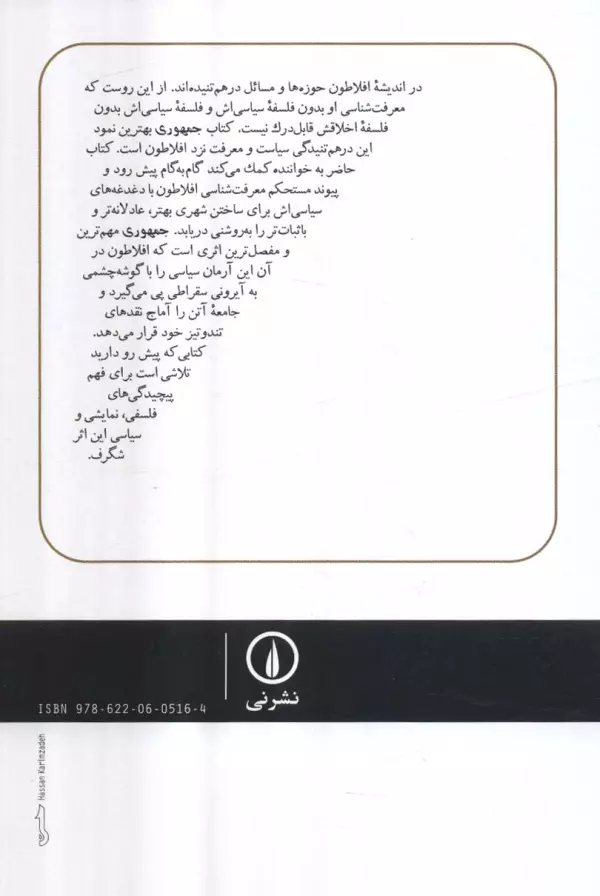 در اندیشهٔ افلاطون حوزه‌ها و مسائل درهم‌تنیده‌اند. از این روست که
معرفت‌شناسی او بدون فلسفهٔ سیاسی‌اش و فلسفهٔ سیاسی‌اش بدون
فلسفهٔ اخلاقش قابل‌درك نیست. کتاب جمهوری بهترین نمود
این درهم‌تنیدگی سیاست و معرفت نزد افلاطون است. کتاب
حاضر به خواننده کمك می‌کند گام‌به‌گام پیش رود و
پیوند مستحکم معرفت‌شناسی افلاطون با دغدغه‌های
سیاسی‌اش برای ساختن شهری بهتر، عادلانه‌تر و
باثبات‌تر را به‌روشنی دریابد. جمهوری مهم‌ترین
و مفصل‌ترین اثری است که افلاطون در
آن این آرمان سیاسی را با گوشه‌چشمی
به آیرونی سقراطی پی می‌گیرد و
جامعهٔ آتن را آماج نقدهای
تندوتیز خود قرار می‌دهد.
کتابی‌که پیش رو دارید
تلاشی است برای فهم
پیچیدگی‌های
فلسفی، نمایشی و
سیاسی این اثر
شگرف.
نشرنی
ISBN 978-622-06-0516-4
Hassan Karimzadeh